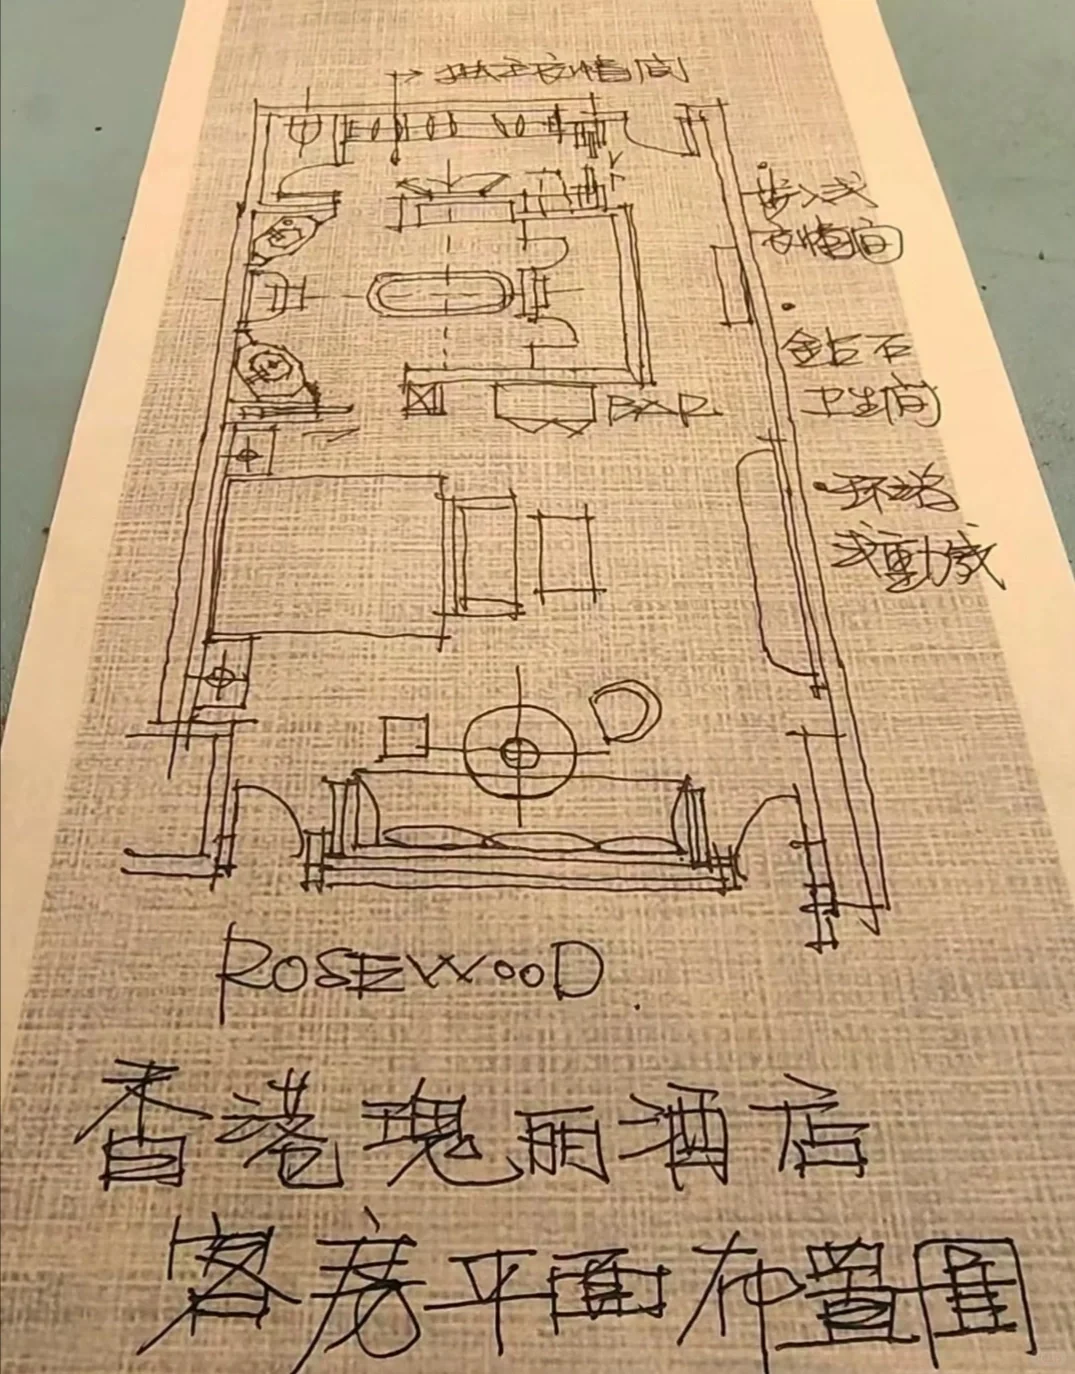 衣帽间
步入式
衣帽间
钻石
卫生间
BAR
环
式動感
ROSEWOOD
香港瑰丽酒店
客房平面布置图